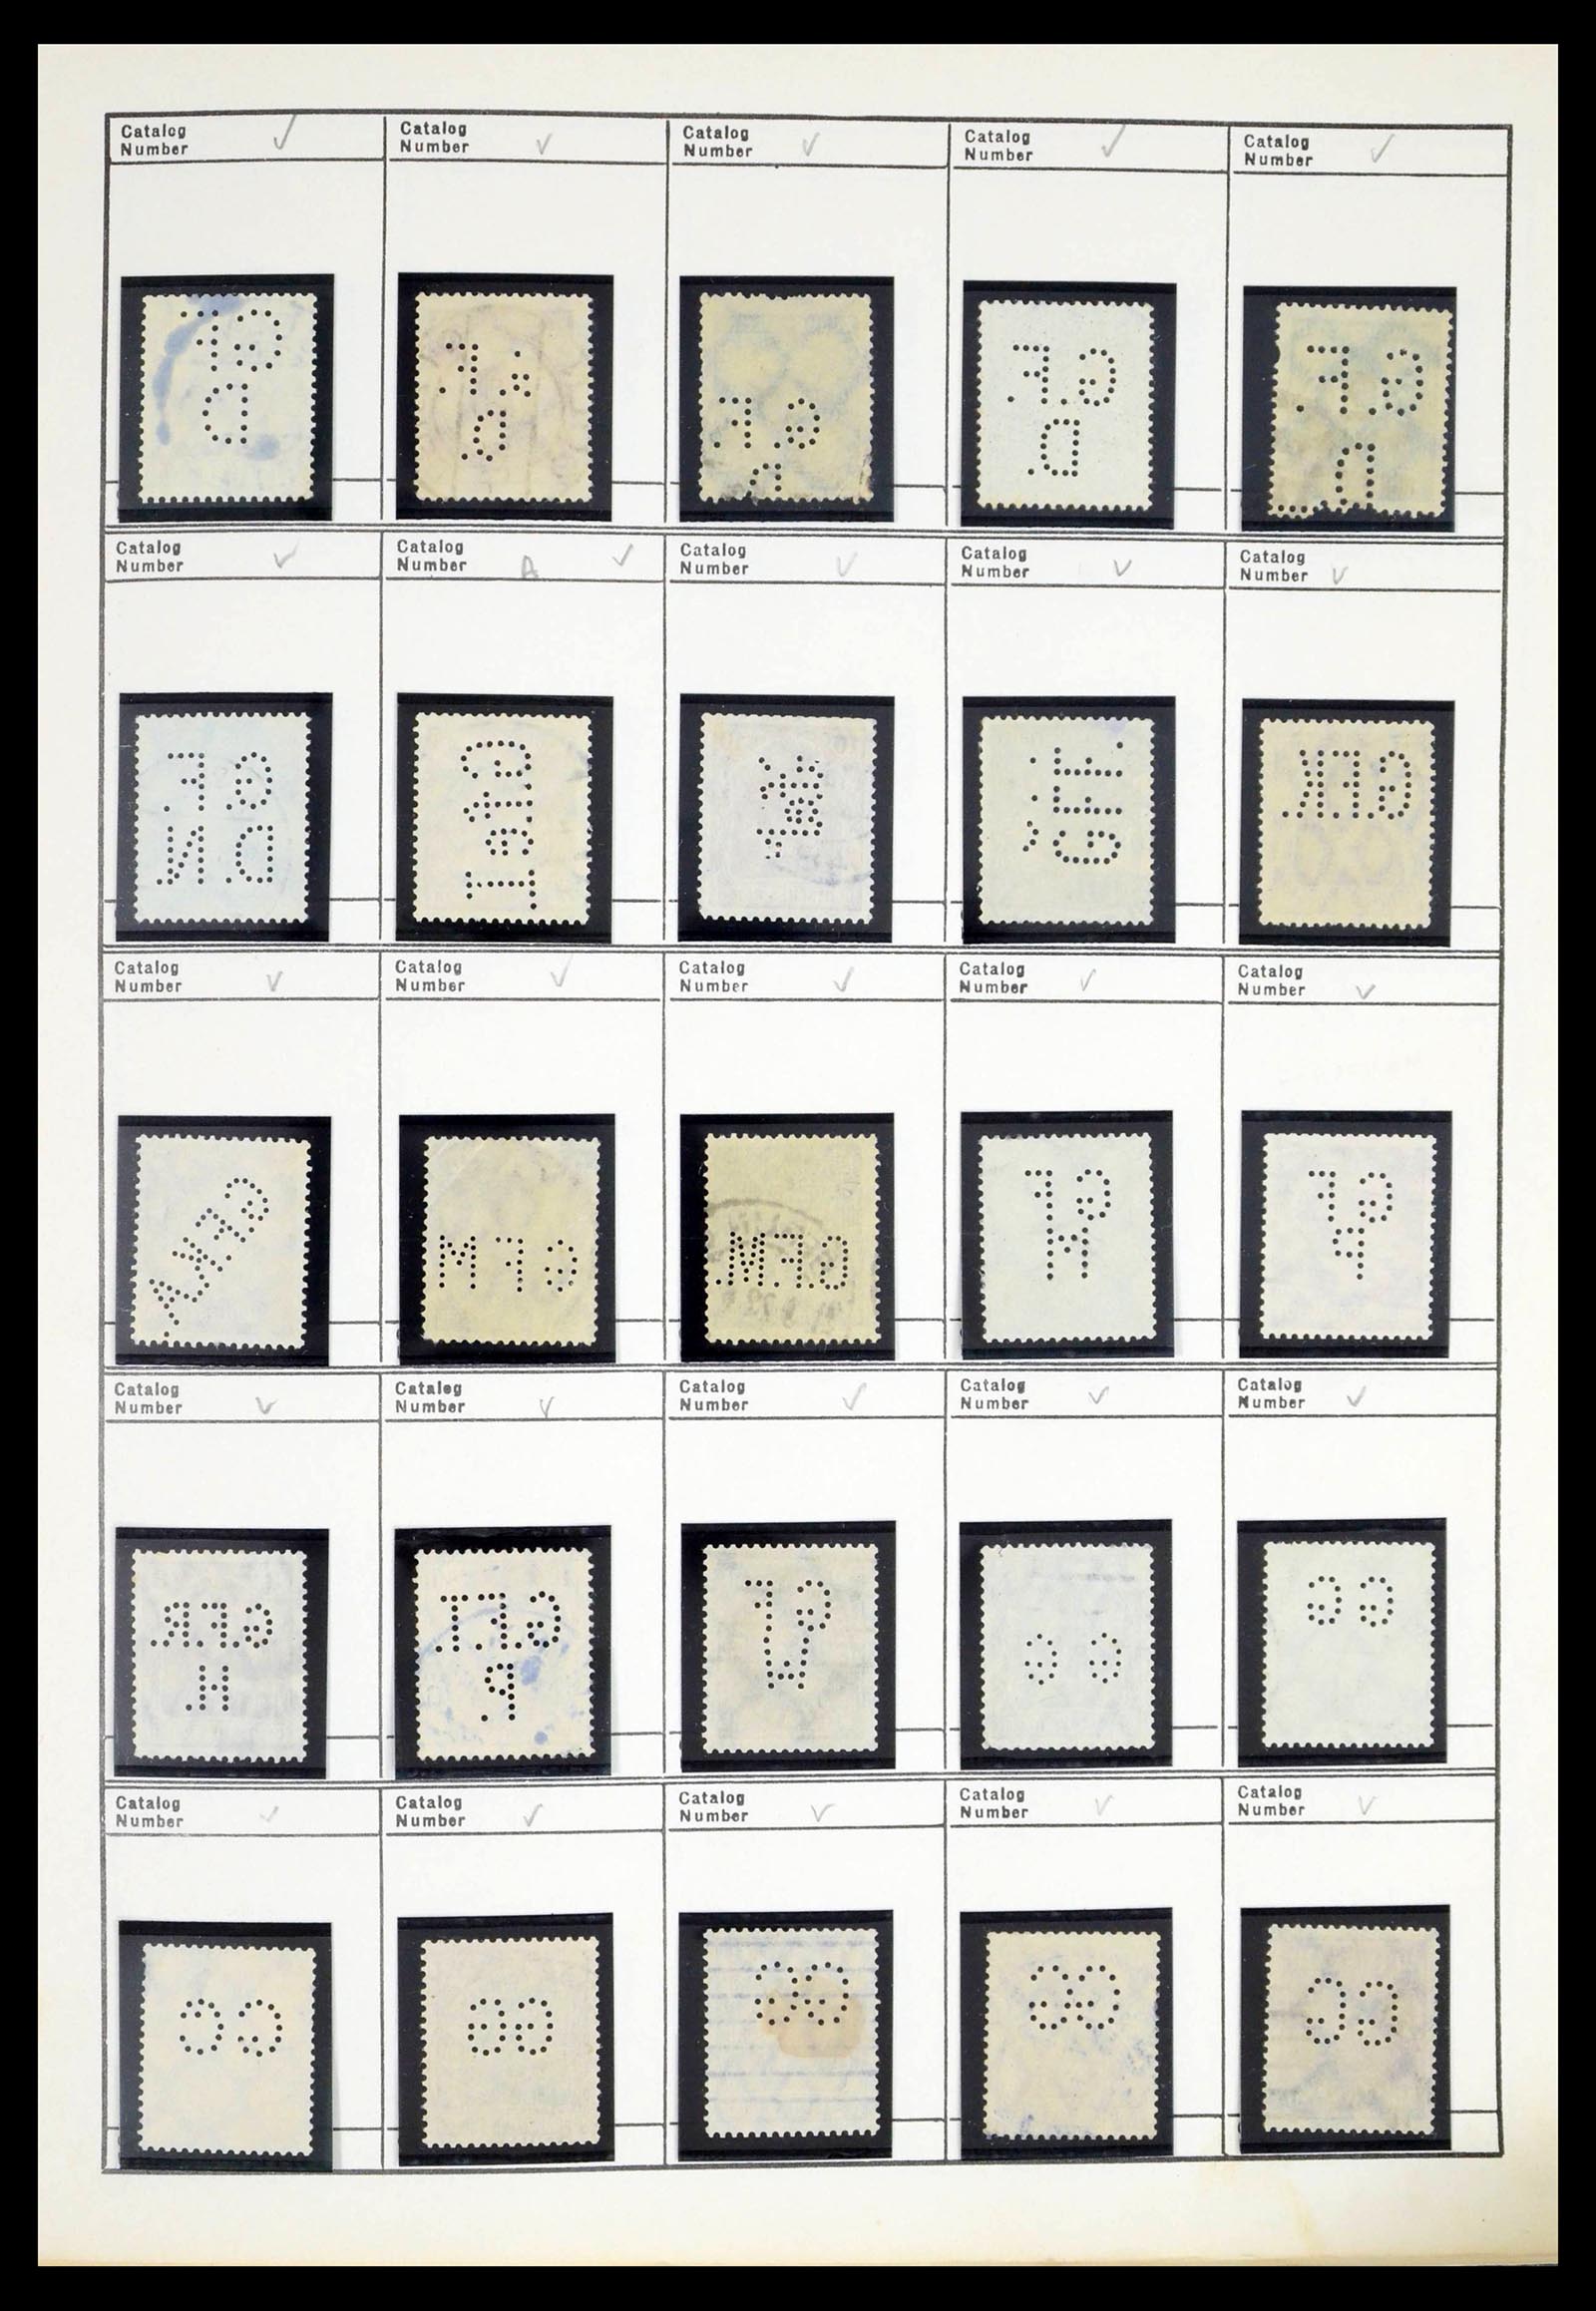 Catalog Number ✓ Catalog Number ✓ Catalog Number ✓ Catalog Number ✓ Catalog Number ✓
G.F. F. G.F. G.F. G.F.
D D. D D. D
Catalog Number ✓ Catalog Number A ✓ Catalog Number ✓ Catalog Number ✓ Catalog Number ✓
G.F. G.F.K.
D N
Catalog Number ✓ Catalog Number ✓ Catalog Number ✓ Catalog Number ✓ Catalog Number ✓
G F M G.F.M. GF GF
M P
Catalog Number ✓ Catalog Number ✓ Catalog Number ✓ Catalog Number ✓ Catalog Number ✓
G.F.R. G.F.T. GF G G GG
H. P.
Catalog Number ✓ Catalog Number ✓ Catalog Number ✓ Catalog Number ✓ Catalog Number ✓
GG GG GG GG GG